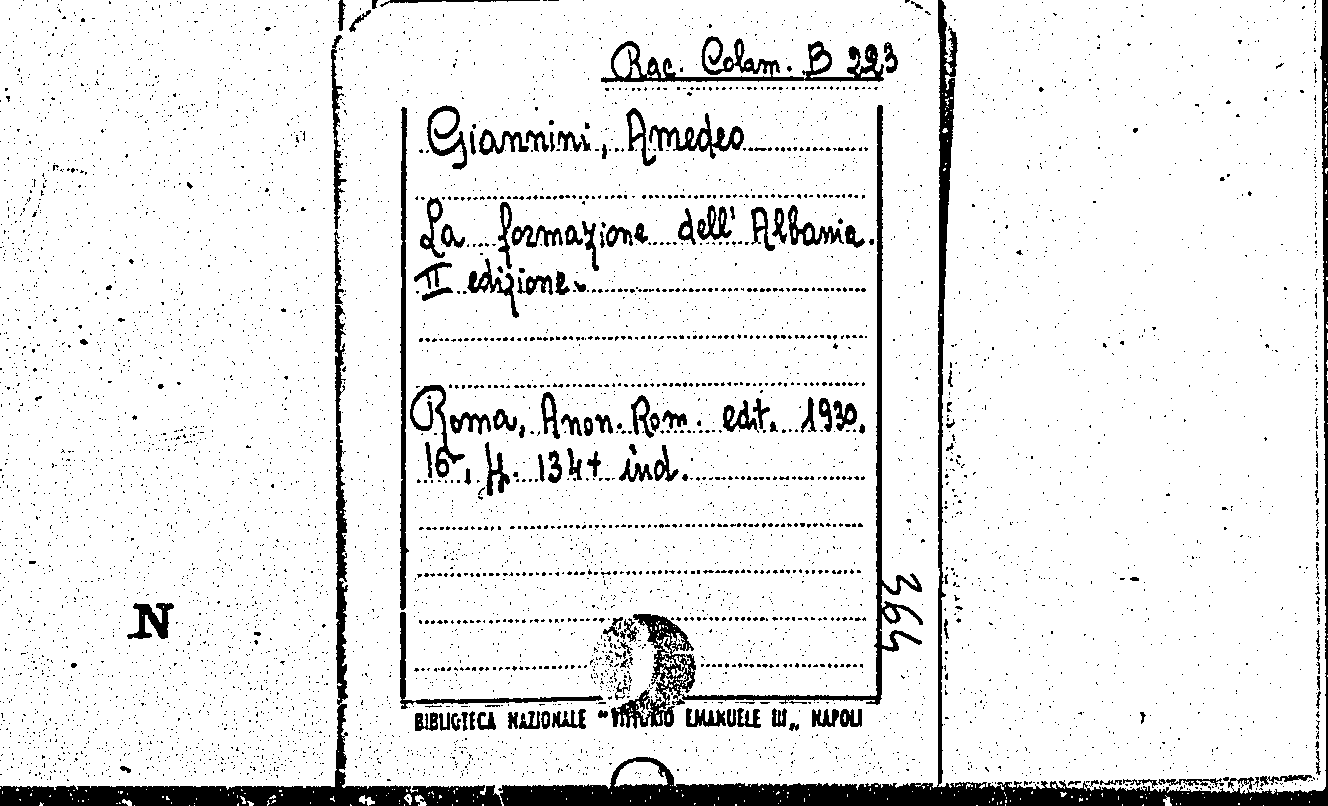 Rac. Colam. B 223
Giannini, Amedeo
La formazione dell' Albania.
II edizione.
Roma, Anon. Rom. edit. 1930.
16°, pp. 134 + ind.
364
N
BIBLIOTECA NAZIONALE "VITTORIO EMANUELE III„ NAPOLI